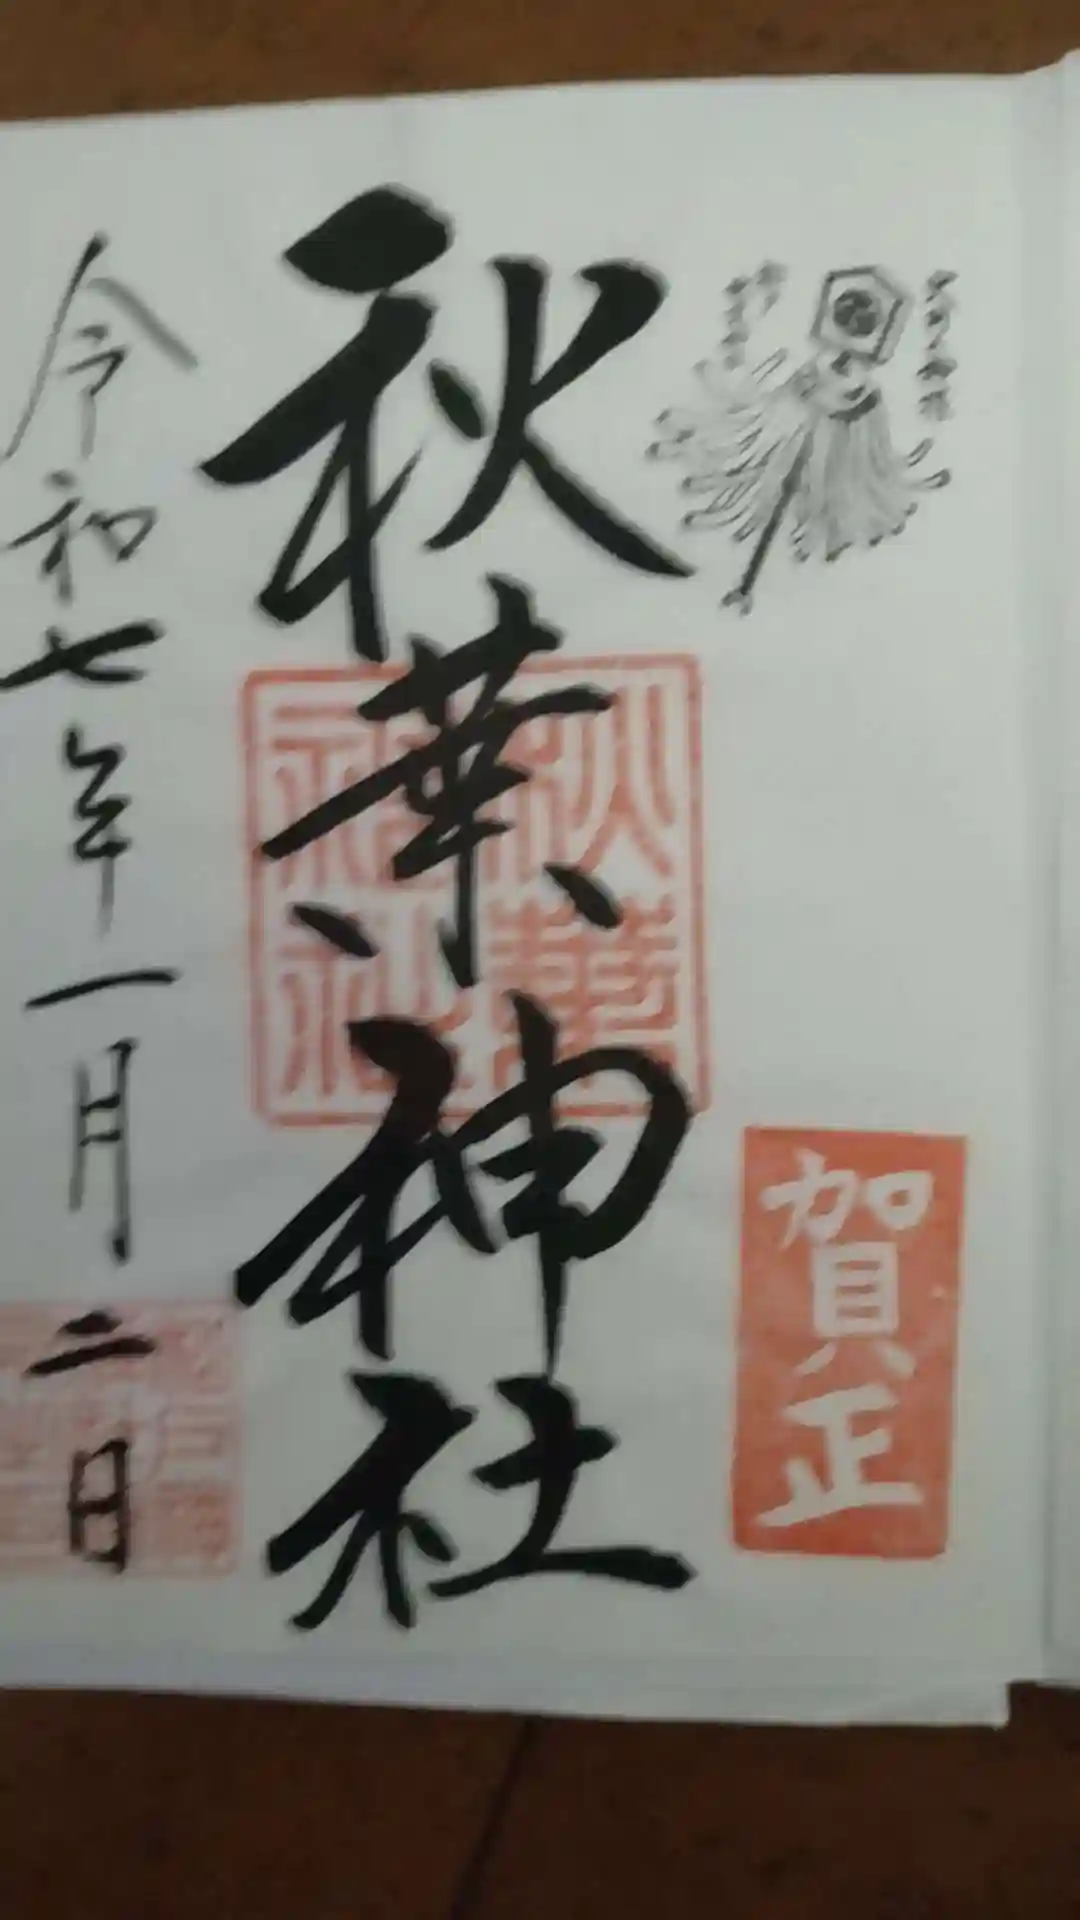 賀正
秋葉神社
秋葉
神社
令和七年一月二日